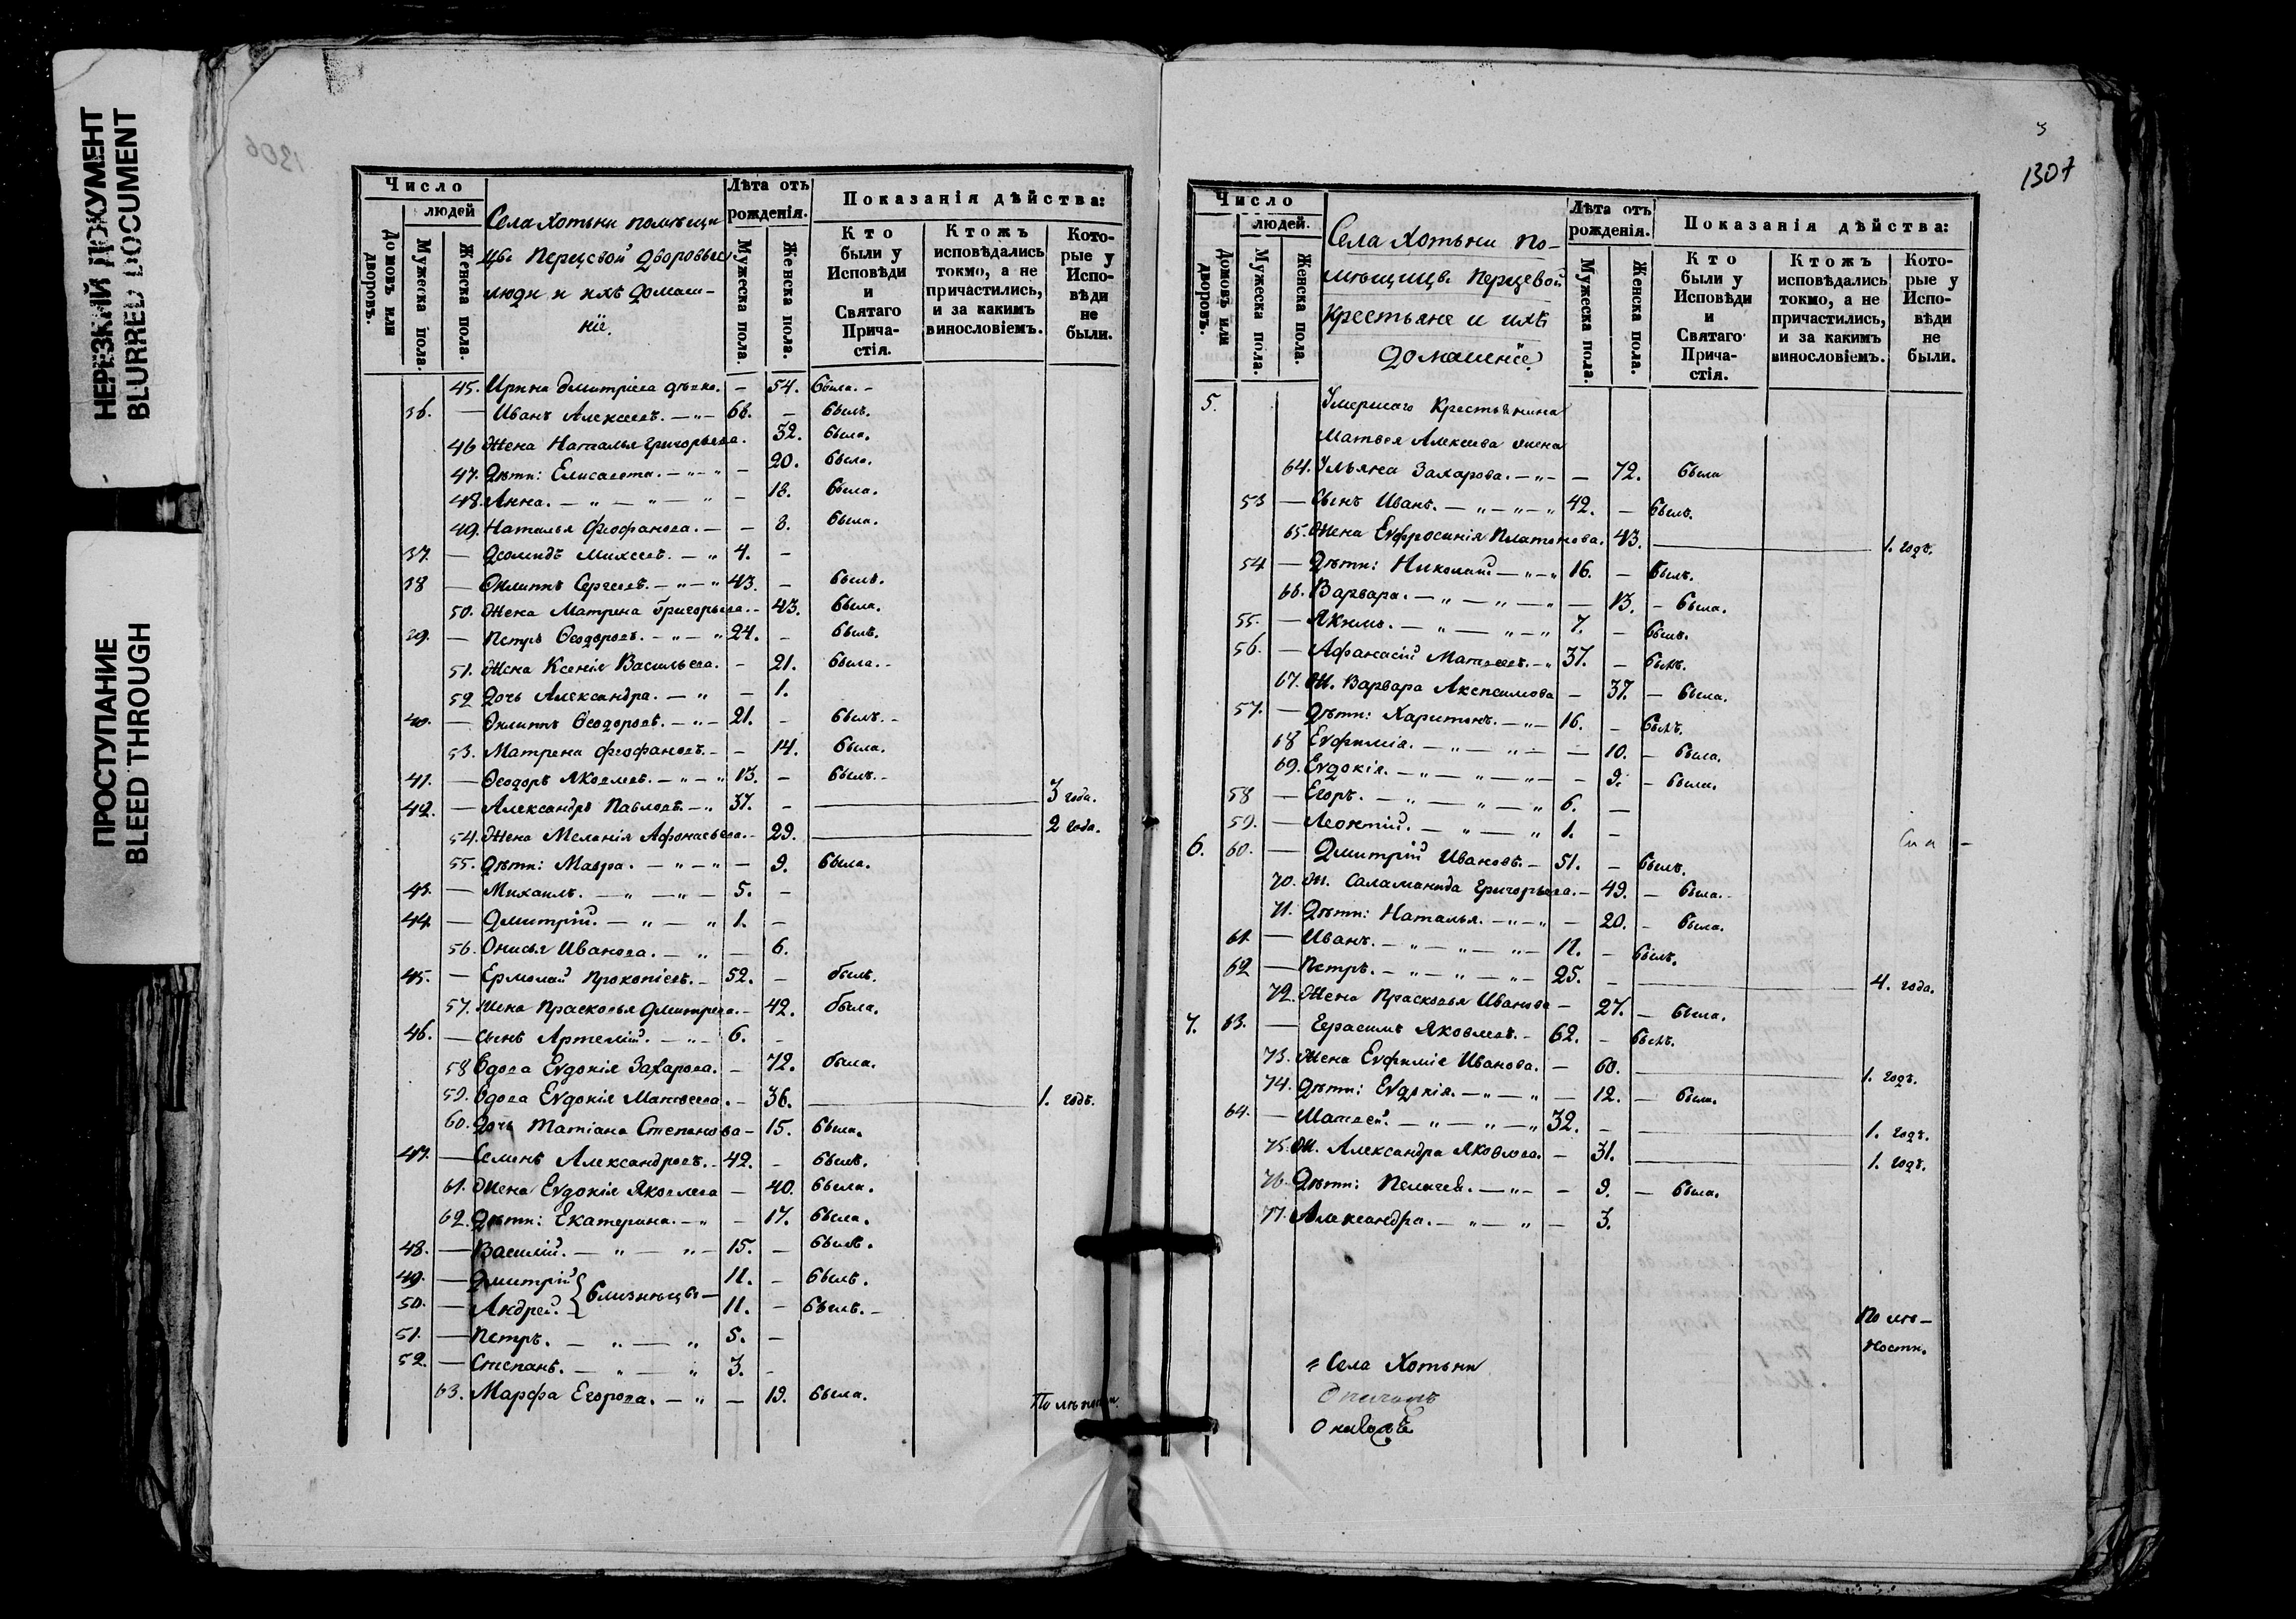 НЕРЕЗКИЙ ДОКУМЕНТ
BLURRED DOCUMENT
ПРОСТУПАНИЕ
BLEED THROUGH
1306
Число
людей
Домовъ или дворовъ.
Мужеска пола.
Женска пола.
Села Хотьни помѣщи
цы Перцевой дворовые
люди и ихъ домаш-
ніе.
Лѣта отъ
рожденія.
Мужеска пола.
Женска пола.
Показанія дѣйства:
Кто
были у
Исповѣди
и
Святаго
Прича-
стія.
Ктожъ
исповѣдались
токмо, а не
причастились,
и за какимъ
винословіемъ.
Кото-
рые у
Испо-
вѣди
не
были.
45. Ирина Дмитріева дѣвка. – 54. была. –
36. — Иванъ Алексеевъ. — „ – 66. – былъ.
46 Жена Наталья Григорьева. 52. была.
47. Дѣти: Елисавета. — „ – „ – 20. была.
48. Анна. — „ — „ — „ – 18. была.
49. Наталья Феофанова. — – 8. была.
37. — Деомидъ Михеевъ. — „ 4. –
38 — Филиппъ Сергеевъ. — „ — „ 43. – былъ.
50. Жена Матрена Григорьева. – 43. была.
39. — Петръ Ѳеодоровъ. — „ — „ 24. – былъ.
51. Жена Ксенія Васильева. – 21. была. –
52 Дочь Александра. — „ – 1.
40. — Филиппъ Ѳеодоровъ. — „ – 21. – былъ. –
53. Матрена Феофановъ. – – 14. была.
41. — Ѳеодоръ Яковлевъ. — „ — „ 13. – былъ. –
42. — Александръ Павловъ. — „ 37. – — 3 года.
54. Жена Меланія Афонасьева. – 29. — 2 года.
55. Дѣти: Мавра. — „ — „ – 9. была.
43. — Михаилъ. — „ — „ – 5. –
44. — Дмитрій. — „ — „ 1. –
56. Онисья Иванова. — „ – 6.
45. — Ермолай Прокопіевъ. – 52. – былъ.
57. Жена Прасковья Дмитрева. – 42. была.
46. — Сынъ Артемій. — „ – 6. –
58 Вдова Евдокія Захарова. – 72. была.
59. Вдова Евдокія Матвеева. – 36. — 1. годъ.
60. Дочь Татіана Степанова – 15. была.
47. — Семенъ Александровъ. – 42. – былъ.
61. Жена Евдокія Яковлева – 40. была.
62. Дѣти: Екатерина. — „ – 17. была.
48. — Василій. — „ — „ – 15. – былъ.
49. — Дмитрій } близнецы — 11. – былъ.
50. — Андрей. 11. – былъ. –
51. — Петръ. — „ — „ 5. –
52. — Степанъ. — „ „ 3. –
63. Марфа Егорова. — „ – 19. была.
3
1307
Число
людей.
Домовъ или дворовъ.
Мужеска пола.
Женска пола.
Села Хотьни по-
мѣщицы Перцевой
Крестьяне и ихъ
домашніе
Лѣта отъ
рожденія.
Мужеска пола.
Женска пола.
Показанія дѣйства:
Кто
были у
Исповѣди
и
Святаго
Прича-
стія.
Ктожъ
исповѣдались
токмо, а не
причастились,
и за какимъ
винословіемъ.
Кото-
рые у
Испо-
вѣди
не
были.
5. Умершаго Крестьянина
Матвея Алексеева жена
64. Ульяна Захарова. — „ – – 72. была
53 — Сынъ Иванъ. — „ — „ — „ 42. – былъ.
65. Жена Евфросинія Платонова. 43. — 1. годъ.
54 — Дѣти: Николай — „ — „ 16. – былъ.
66. Варвара. — „ — „ — „ – 13. – была.
55. — Якимъ. — „ — „ — „ 7. – былъ.
56. — Афанасій Матвеевъ. – „ 37. – былъ.
67. Ж. Варвара Акепсимова – 37. – была.
57. — Дѣти: Харитонъ. — „ – 16. – былъ.
68 Евфимія. — „ — „ – – 10. – была.
69. Евдокія. — „ — „ — „ – – 9. – была.
58 — Егоръ. — „ — „ — „ 6. –
59. — Леонтій. — „ — „ 1. –
6. 60. — Дмитрій Ивановъ. – 51. – былъ.
70. Ж. Саламанида Григорьева. – 49. – была. –
71. Дѣти: Наталья. — „ – „ – 20. – была.
61. — Иванъ. — „ — „ — „ – 11. – былъ.
62 — Петръ. — „ — „ — „ – 25. – — 4. года.
72. Жена Прасковья Иванова – 27. – была.
7. 63. — Герасимъ Яковлевъ. – 62. – былъ.
73. Жена Евфимія Иванова. – 60. — 1. годъ.
74. Дѣти: Евдокія. — „ — „ – 12. – была.
64. — Матвей. — „ — „ — „ 32. – — 1. годъ.
75. Ж. Александра Яковлева. – 31. — 1. годъ.
76. Дѣти: Пелагея. — „ – – 9. – была.
77. Александра. — „ — „ – 3.
По лѣ-
ности.
Села Хотьни